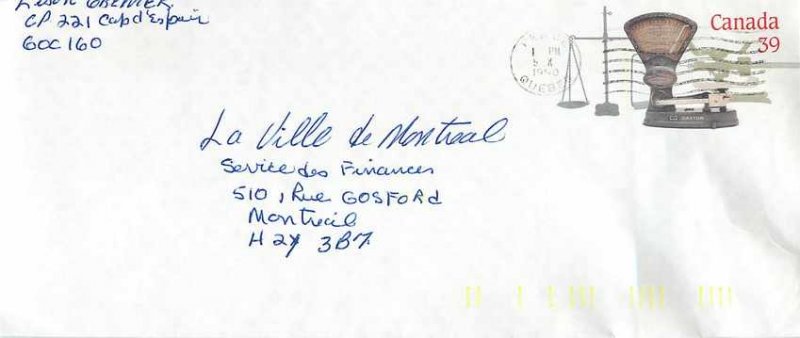 CP 221 Cap d'Espoir
GOC 1GO
Canada
39
1 PM
1990
QUEBEC
La Ville de Montreal
Service des Finances
510, Rue GOSFORd
Montreal
H2Y 3B7